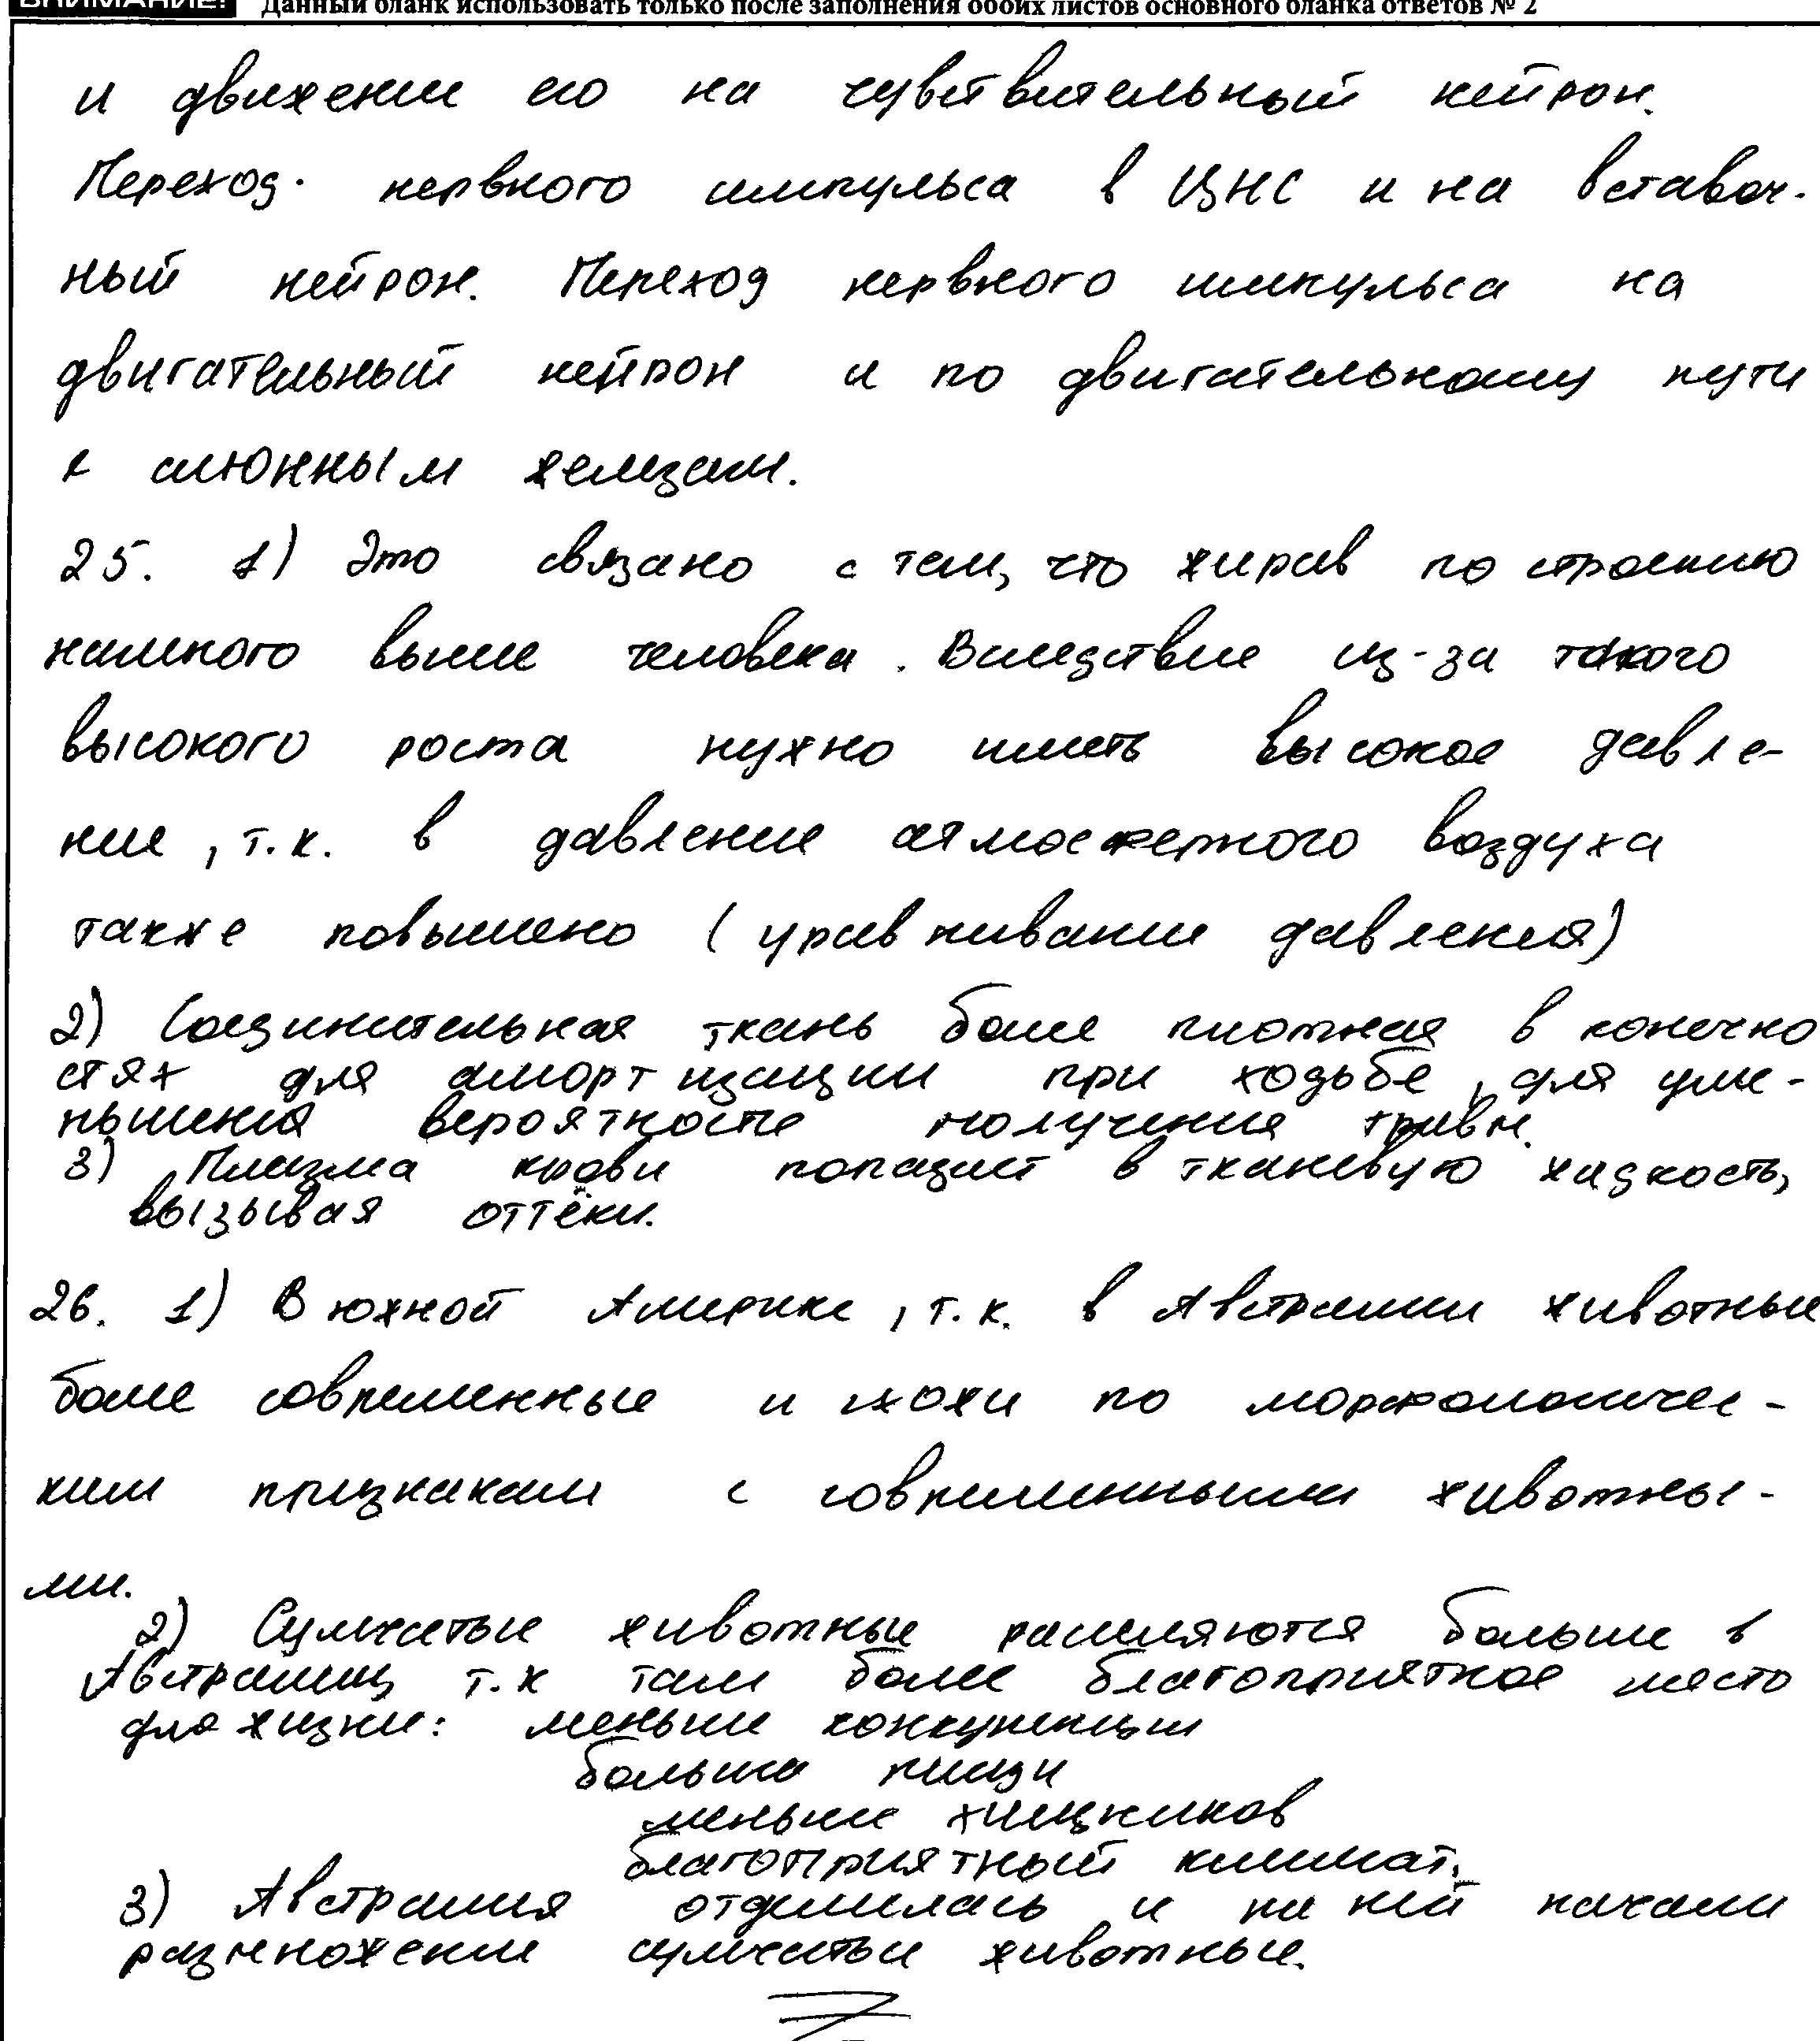 ВНИМАНИЕ! Данный бланк использовать только после заполнения обоих листов основного бланка ответов № 2
и движение его на чувствительный нейрон.
Переход нервного импульса в ЦНС и на вставоч-
ный нейрон. Переход нервного импульса на
двигательный нейрон и по двигательному пути
к слюнным железам.
25. 1) Это связано с тем, что жираф по строению
намного выше человека. Вследствие из-за такого
высокого роста нужно иметь высокое давле-
ние, т.к. в давление атмосферного воздуха
также повышено (уравнивание давления)
2) Соединительная ткань более плотная в конечно
стях для амортизации при ходьбе, для уме-
ньшения вероятности получения травм.
3) Плазма крови попадает в тканевую жидкость,
вызывая оттёки.
26. 1) В южной Америке, т.к. в Австралии животные
более современные и схожи по морфологичес-
ким признакам с современными животны-
ми.
2) Сумчатые животные расселяются больше в
Австралии, т.к там более благоприятное место
для жизни: меньше конкуренции
больше пищи
меньше хищников
благоприятный климат.
3) Австралия отделилась и на ней начали
размножение сумчатые животные.